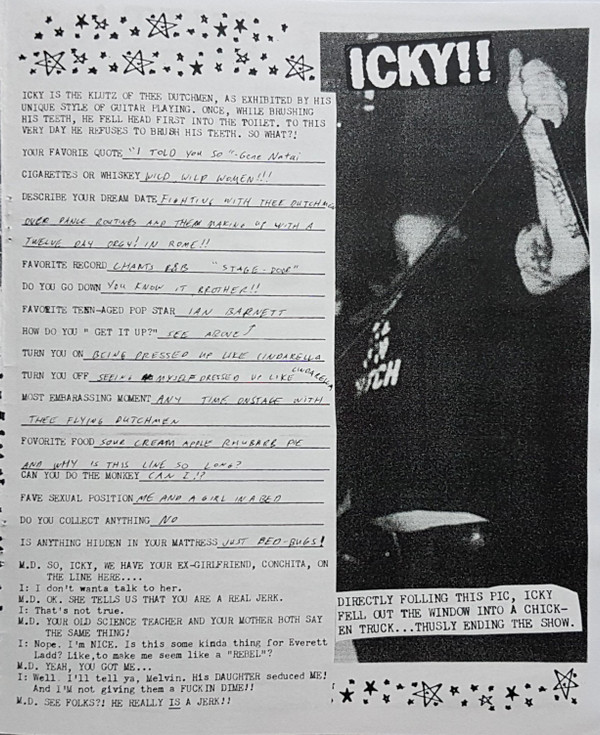 ICKY!!
ICKY IS THE KLUTZ OF THEE DUTCHMEN, AS EXHIBITED BY HIS
UNIQUE STYLE OF GUITAR PLAYING. ONCE, WHILE BRUSHING
HIS TEETH, HE FELL HEAD FIRST INTO THE TOILET. TO THIS
VERY DAY HE REFUSES TO BRUSH HIS TEETH. SO WHAT?!
YOUR FAVORIE QUOTE "I TOLD YOU SO"-Gene
CIGARETTES OR WHISKEY WILD WILD WOMEN!!!
DESCRIBE YOUR DREAM DATE FIGHTING WITH THEE DUTCHMEN
OVER DANCE ROUTINES AND THEN MAKING UP WITH A
TWELVE DAY ORGY! IN ROME!!
FAVORITE RECORD CHANTS R&B "STAGE-DOOR"
DO YOU GO DOWN YOU KNOW IT BROTHER!!
FAVORITE TEEN-AGED POP STAR IAN BARNETT
HOW DO YOU " GET IT UP?" SEE ABOVE
TURN YOU ON BEING DRESSED UP LIKE CINDARELLA
TURN YOU OFF SEEING MYSELF DRESSED UP LIKE CINDARELLA
MOST EMBARASSING MOMENT ANY TIME ONSTAGE WITH
THEE FLYING DUTCHMEN
FOVORITE FOOD SOUR CREAM APPLE RHUBARB PIE
AND WHY IS THIS LINE SO LONG?
CAN YOU DO THE MONKEY CAN I!?
FAVE SEXUAL POSITION ME AND A GIRL IN A BED
DO YOU COLLECT ANYTHING NO
IS ANYTHING HIDDEN IN YOUR MATTRESS JUST BED-BUGS!
M.D. SO, ICKY, WE HAVE YOUR EX-GIRLFRIEND, CONCHITA, ON
THE LINE HERE....
I: I don't wanta talk to her.
M.D. OK. SHE TELLS US THAT YOU ARE A REAL JERK.
I: That's not true.
M.D. YOUR OLD SCIENCE TEACHER AND YOUR MOTHER BOTH SAY
THE SAME THING!
I: Nope. I'm NICE. Is this some kinda thing for Everett
Ladd? Like,to make me seem like a "REBEL"?
M.D. YEAH, YOU GOT ME...
I: Well. I'll tell ya, Melvin. His DAUGHTER seduced ME!
And I'M not giving them a FUCKIN DIME!!
M.D. SEE FOLKS?! HE REALLY IS A JERK!!
DIRECTLY FOLLING THIS PIC, ICKY
FELL OUT THE WINDOW INTO A CHICK-
EN TRUCK...THUSLY ENDING THE SHOW.